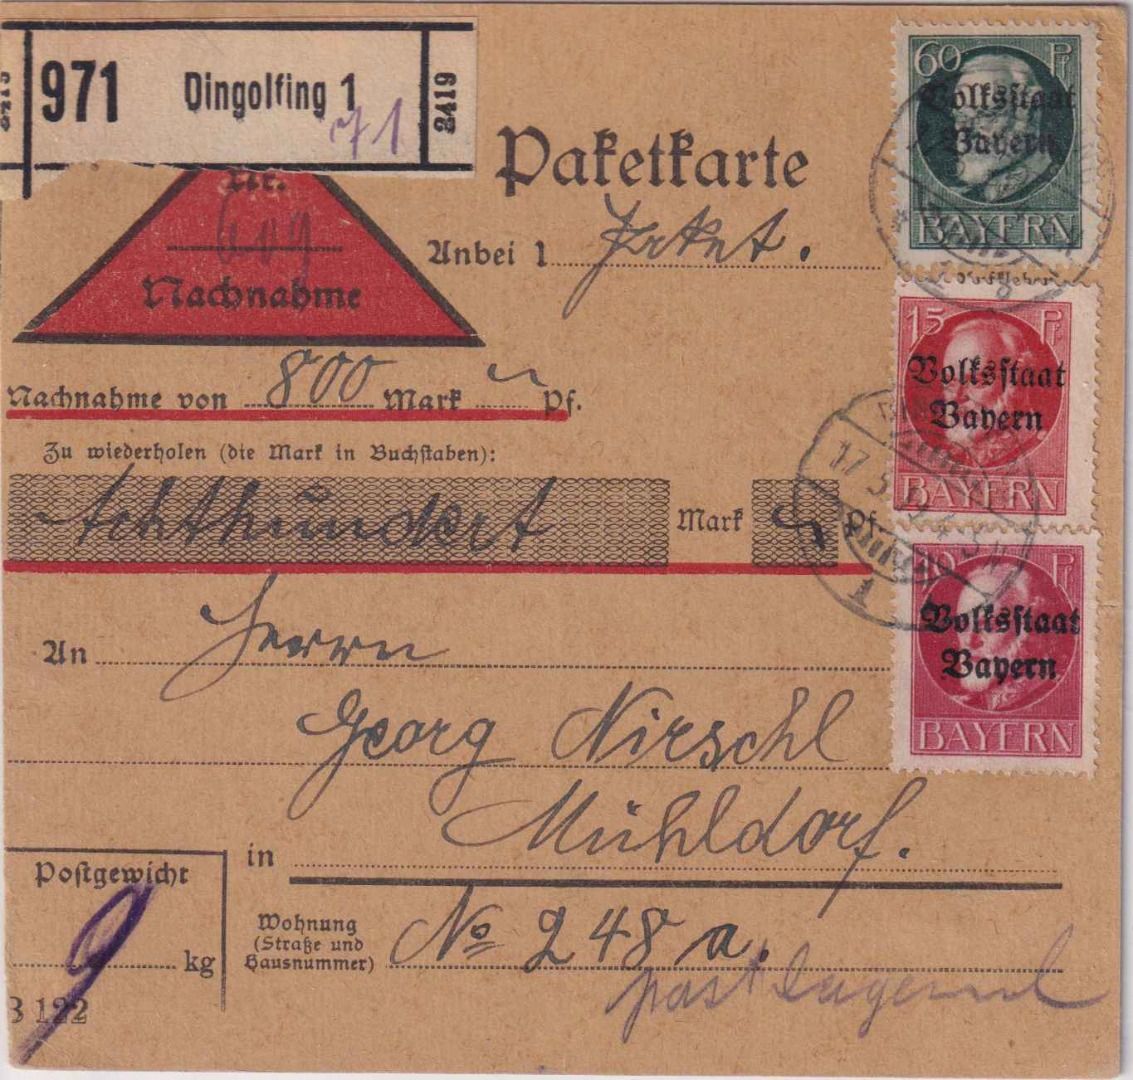 2419
971 Dingolfing 1
71
2419
Paketkarte
Nr.
Nachnahme
Anbei 1 Paket.
Nachnahme von 800 Mark Pf.
Zu wiederholen (die Mark in Buchstaben):
Achthundert Mark Pf.
An Herrn
Georg Nirschl
in Mühldorf.
Postgewicht
9 kg
Wohnung
(Straße und
Hausnummer)
No 248 a.
postlagernd
B 122
60 Pf
Volksstaat
Bayern
BAYERN
15 Pf
Volksstaat
Bayern
BAYERN
17 3
1
10 Pf
Volksstaat
Bayern
BAYERN